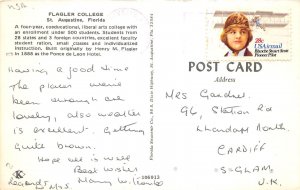 FLAGLER COLLEGE
St. Augustine, Florida
A four-year, coeducational, liberal arts college with
an enrollment under 500 students. Students from
28 states and 3 foreign countries, excellent faculty
student ration, small classes and individualized
instruction. Built originally by Henry M. Flagler
in 1888 as the Ponce de Leon Hotel.
Having a good time
The places we've
been through are
lovely, also weather
is excellent. Getting
quite brown.
Hope all is well
Best wishes
Regards Mrs
106913
28c
USAirmail
Blanche Stuart Scott
Pioneer Pilot
POST CARD
Address
Mrs Gardner
96, Station Rd
Llandaff North
CARDIFF
S. GLAM,
U.K.